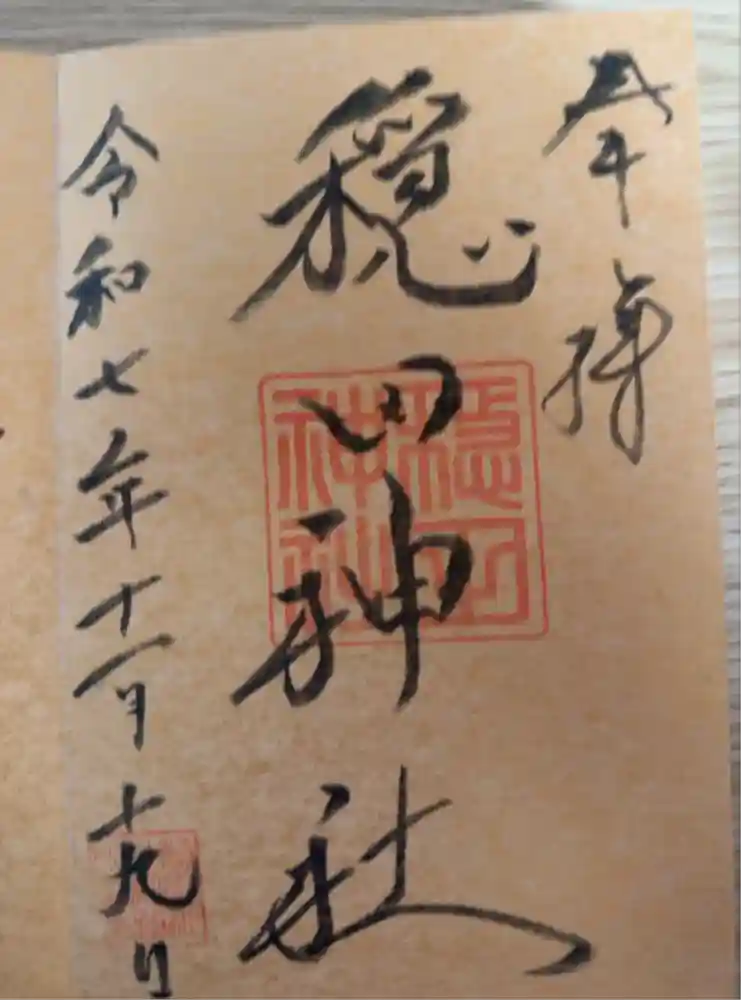 奉拝
穏田神社
穏田
神社
令和七年十一月十九日